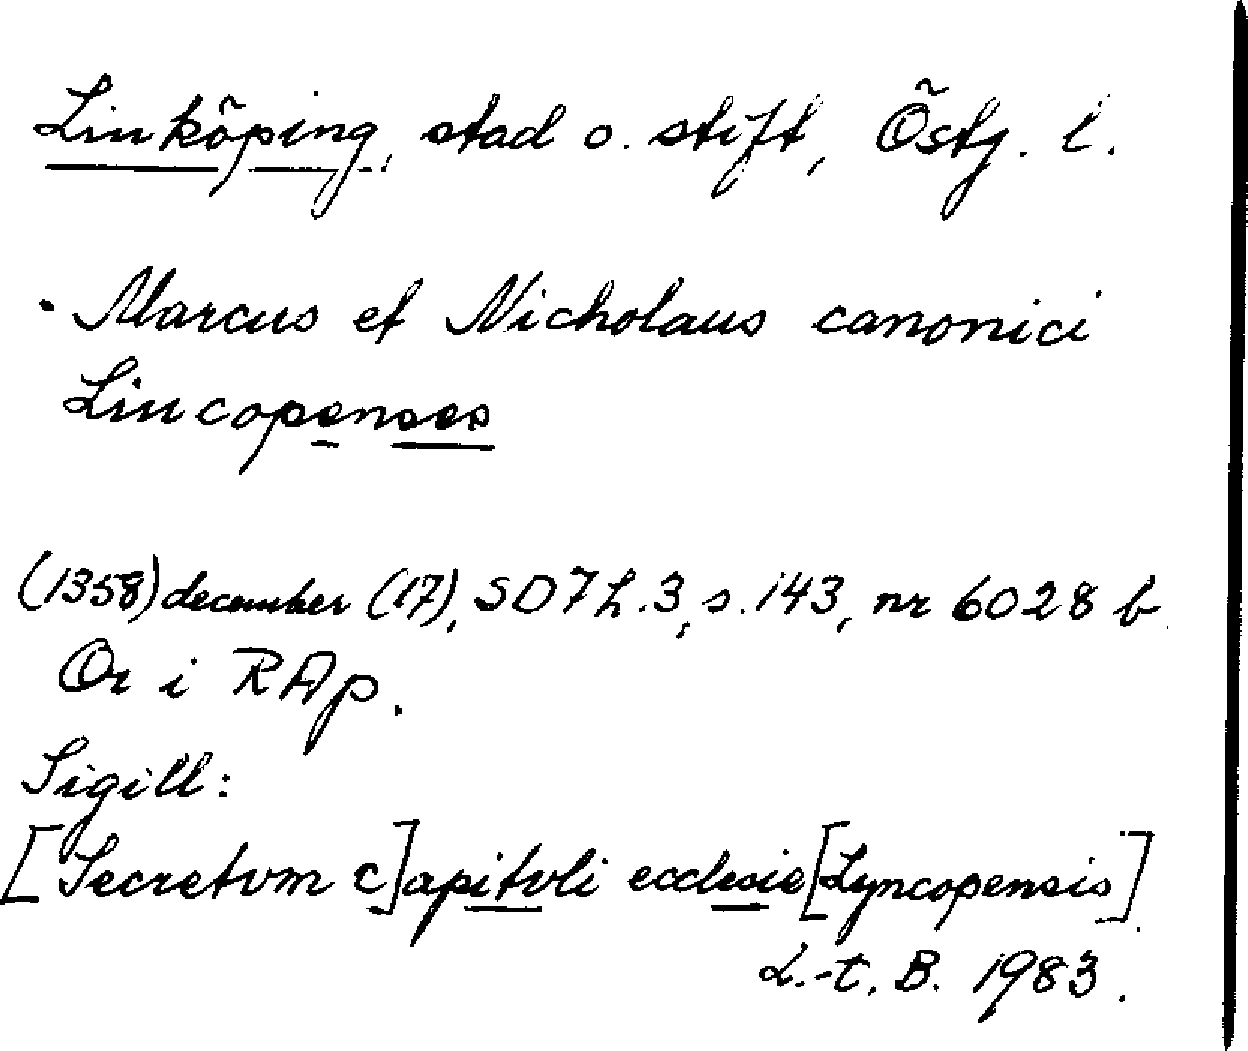 Linköping, stad o. stift, Östg. l.
· Marcus et Nicholaus canonici
Lincopenses
(1358) december (17), SD 7 h. 3, s. 143, nr 6028 b.
Or i RAp.
Sigill:
[Secretvm c]apitvli ecclesie [Lyncopensis].
L.-t. B. 1983.